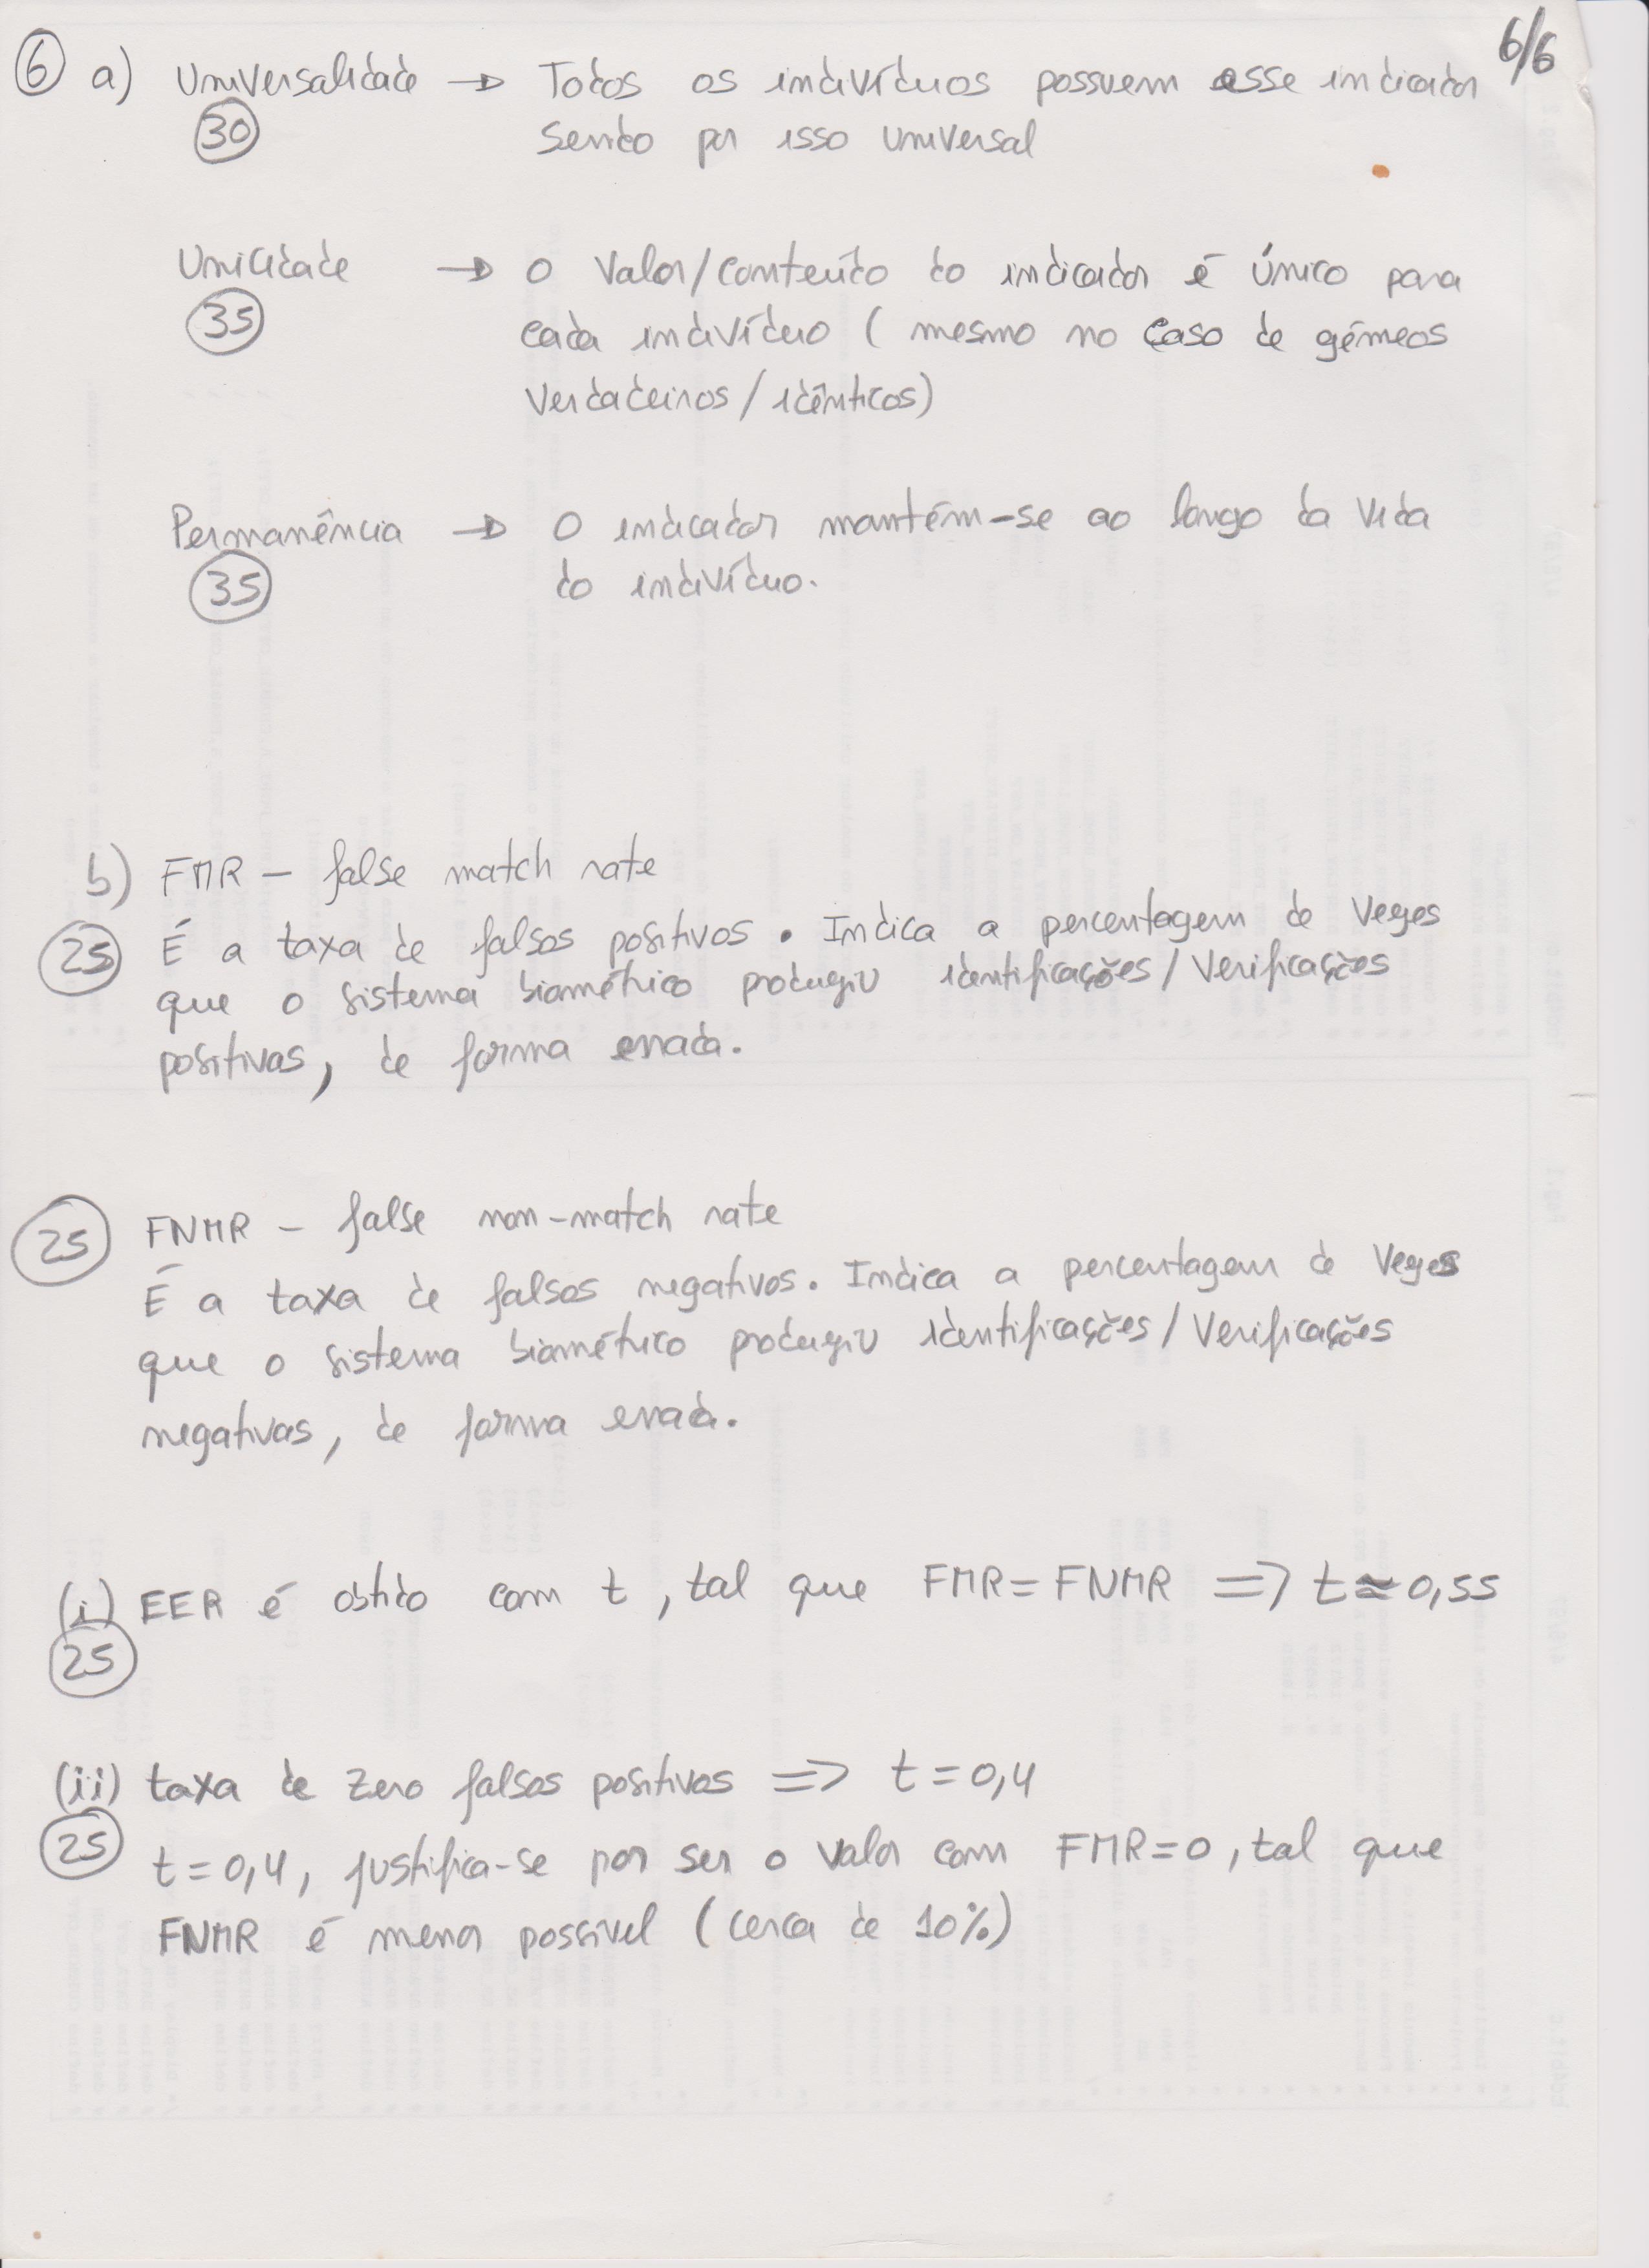 6/6
6 a) Universalidade → Todos os indivíduos possuem esse indicador
30 sendo por isso universal
Unicidade → O valor/conteúdo do indicador é único para
35 cada indivíduo (mesmo no caso de gémeos
verdadeiros/idênticos)
Permanência → O indicador mantém-se ao longo da vida
35 do indivíduo.
b) FMR - false match rate
25 É a taxa de falsos positivos. Indica a percentagem de vezes
que o sistema biométrico produziu identificações/verificações
positivas, de forma errada.
25 FNMR - false non-match rate
É a taxa de falsos negativos. Indica a percentagem de vezes
que o sistema biométrico produziu identificações/verificações
negativas, de forma errada.
(i) EER é obtido com t, tal que FMR = FNMR => t ≈ 0,55
25
(ii) taxa de zero falsos positivos => t = 0,4
25 t = 0,4, justifica-se por ser o valor com FMR = 0, tal que
FNMR é menor possível (cerca de 10%)